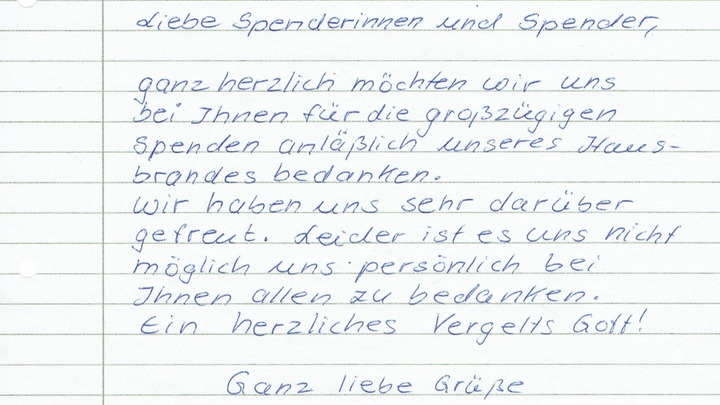 Liebe Spenderinnen und Spender,
ganz herzlich möchten wir uns
bei Ihnen für die großzügigen
Spenden anläßlich unseres Haus-
brandes bedanken.
Wir haben uns sehr darüber
gefreut. Leider ist es uns nicht
möglich uns persönlich bei
Ihnen allen zu bedanken.
Ein herzliches Vergelts Gott!
Ganz liebe Grüße